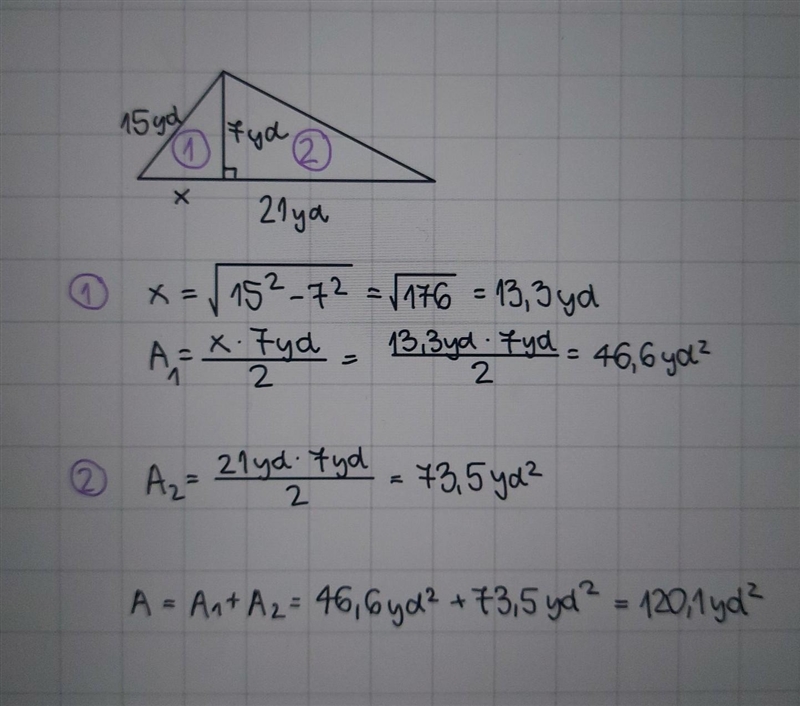 15yd 7yd
① ②
x
21yd
① x = √(15² - 7²) = √176 = 13,3yd
A₁ = (x · 7yd)/2 = (13,3yd · 7yd)/2 = 46,6yd²
② A₂ = (21yd · 7yd)/2 = 73,5yd²
A = A₁ + A₂ = 46,6yd² + 73,5yd² = 120,1yd²